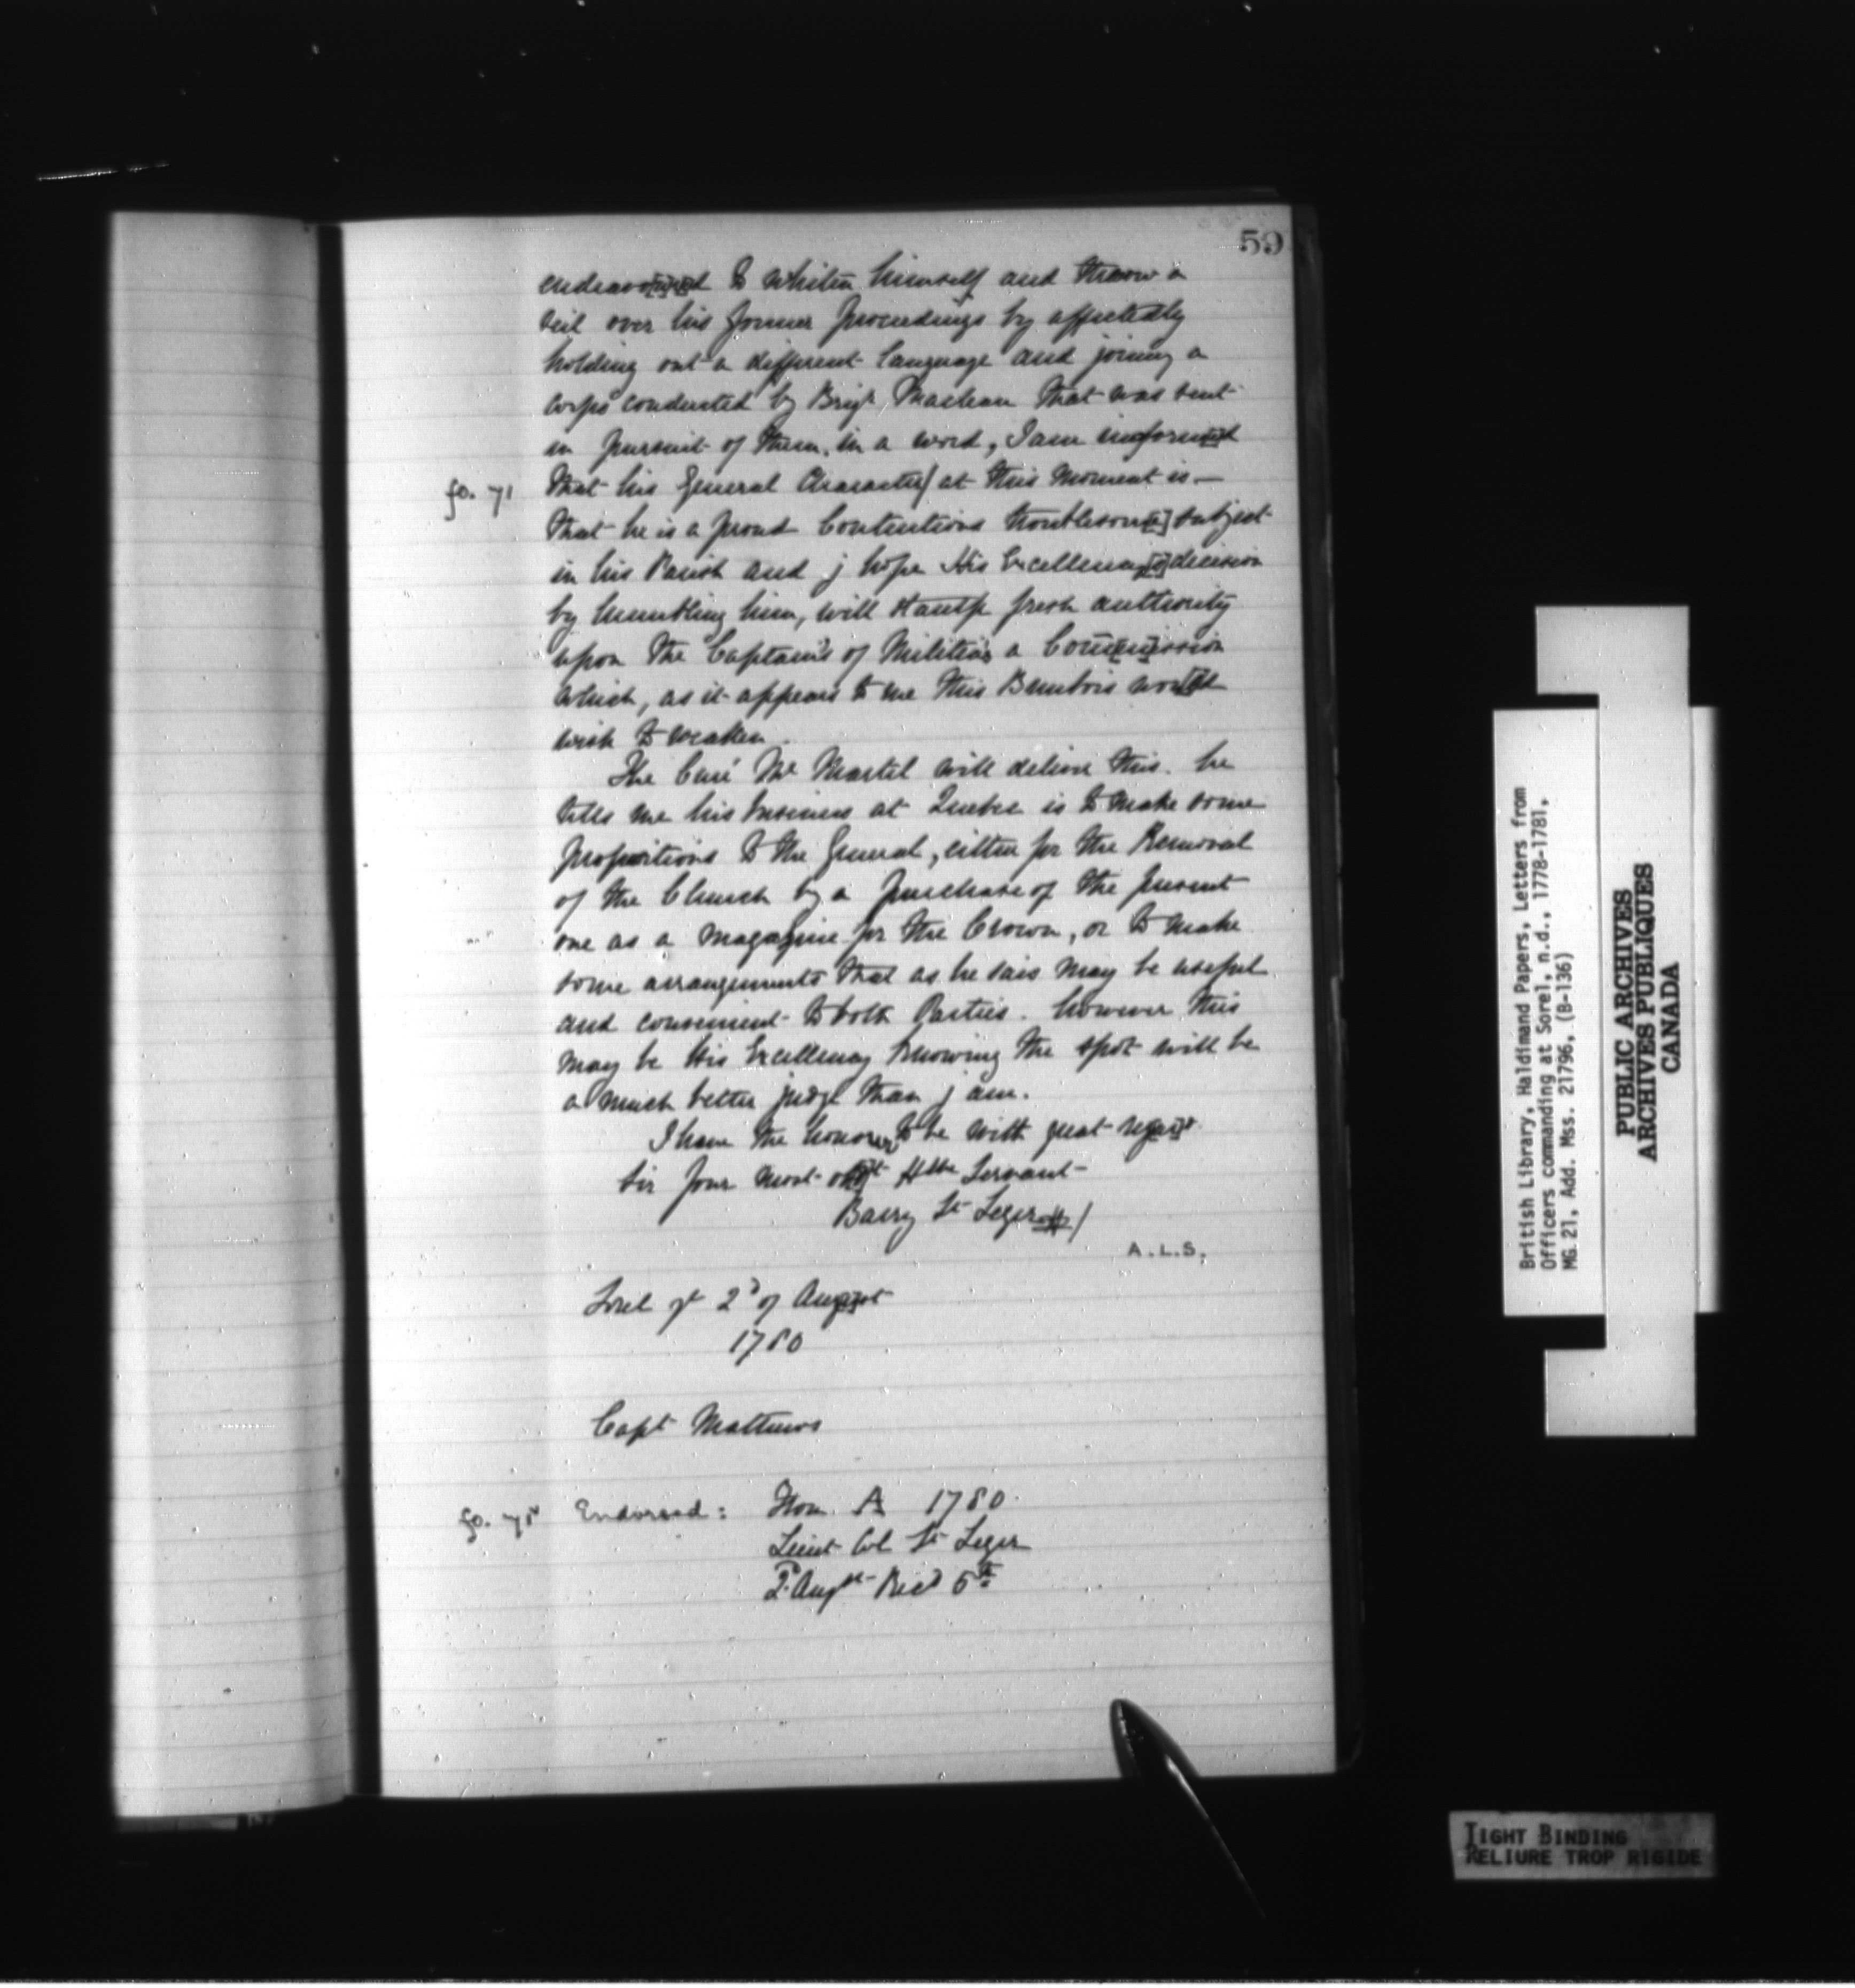 59
endeavo[u]red to whiten himself and throw a
veil over his former proceedings by affectedly
holding out a different language and joining a
corps conducted by Brigr Maclean that was sent
in pursuit of them, in a word, I am informed
fo. 71 that his General Character/ at this moment is —
that he is a proud Contentious troublesom[e] subject
in his Parish and j hope His Excellency[s] decision
by humbling him, will stamp fresh authority
upon the Captains of Militia's a Com[m]ission
which, as it appears to me this Brunbois would
wish to weaken.
The Curé Mr Martel will deliver this. he
tells me his business at Quebec is to make some
propositions to the General, either for the Removal
of the Church by a purchase of the present
one as a magazine for the Crown, or to make
some arrangements that as he sais may be useful
and convenient to both Parties. however this
may be His Excellency knowing the spot will be
a much better judge than j am.
I have the honour to be with great regard
Sir your most obt Hble Servant
Barry St Leger /
A.L.S.
Sorel ye 2d of August
1780
Capt Matthews
fo. Endorsed: From A 1780.
Lieut Col St Leger
2d Augst Recd 5th
British Library, Haldimand Papers, Letters from
Officers commanding at Sorel, n.d., 1778-1781,
MG 21, Add. Mss. 21796, (B-136)
PUBLIC ARCHIVES
ARCHIVES PUBLIQUES
CANADA
TIGHT BINDING
RELIURE TROP RIGIDE